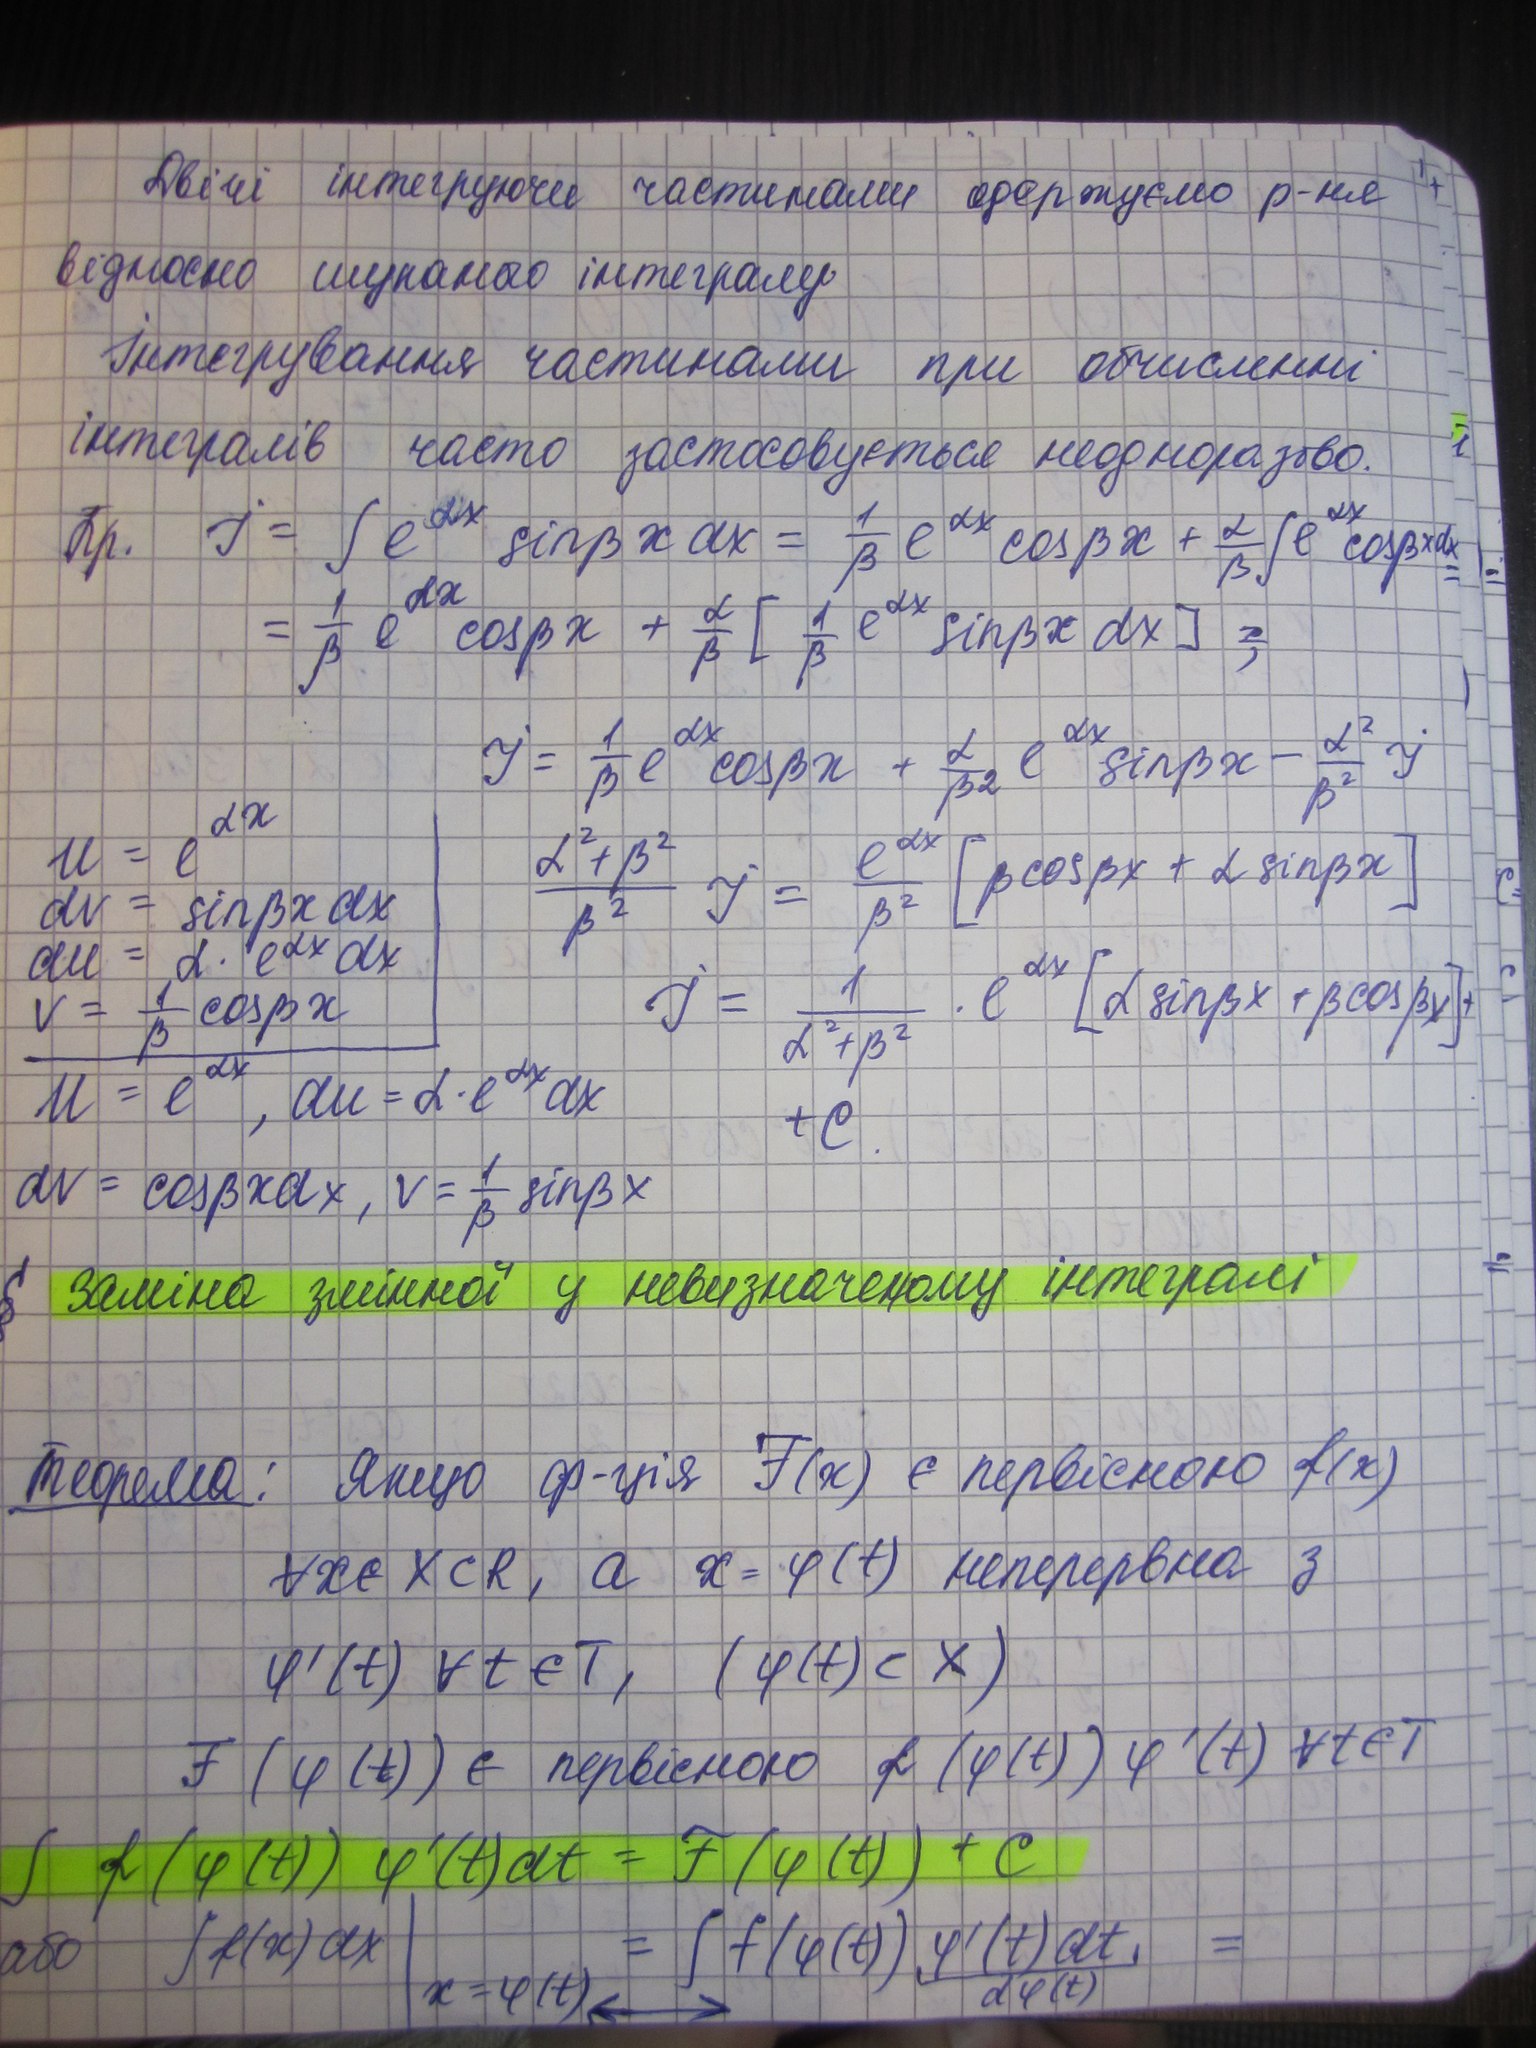 Двічі інтегруючи частинами одержуємо р-ня
відносно шуканого інтегралу
Інтегрування частинами при обчисленні
інтегралів часто застосовується неодноразово.
Пр. J = ∫ e^{αx} sinβx dx = 1/β e^{αx} cosβx + α/β ∫ e^{αx} cosβx dx =
= 1/β e^{αx} cosβx + α/β [ 1/β e^{αx} sinβx dx ] =;
J = 1/β e^{αx} cosβx + α/β2 e^{αx} sinβx − α²/β² J
u = e^{αx}
dv = sinβx dx
du = α · e^{αx} dx
v = 1/β cosβx
(α² + β²)/β² J = e^{αx}/β² [β cosβx + α sinβx]
J = 1/(α² + β²) · e^{αx} [α sinβx + β cosβx] +
+ C.
u = e^{αx}, du = α · e^{αx} dx
dv = cosβx dx, v = 1/β sinβx
§ Заміна змінної у невизначеному інтегралі
Теорема: Якщо ф-ція F(x) є первісною f(x)
∀x∈X⊂R, а x = φ(t) неперервна з
φ'(t) ∀t∈T, (φ(t) ⊂ X)
F(φ(t)) є первісною f(φ(t)) φ'(t) ∀t∈T
∫ f(φ(t)) φ'(t) dt = F(φ(t)) + C
або ∫ f(x) dx |x = φ(t) = ∫ f(φ(t)) φ'(t) dt =
dφ(t)